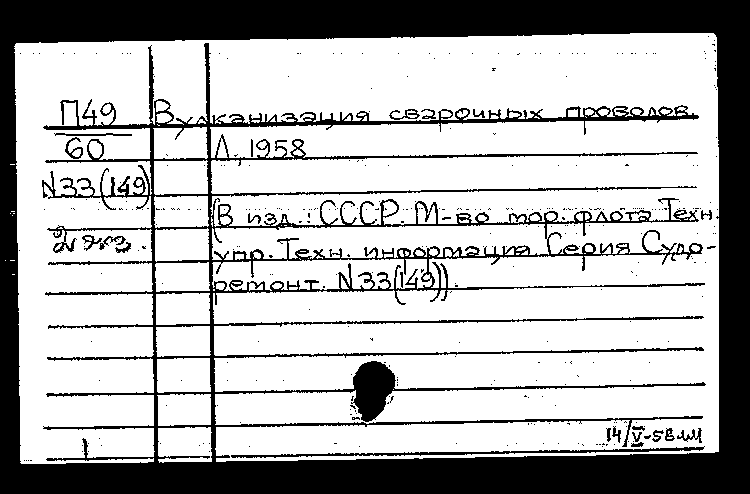 П49 Вулканизация сварочных проводов.
60 Л., 1958
N33(149)
(В изд.: СССР. М-во мор. флота Техн.
2 экз. упр. Техн. информация Серия Судо-
ремонт. N33(149)).
14/V-58
1